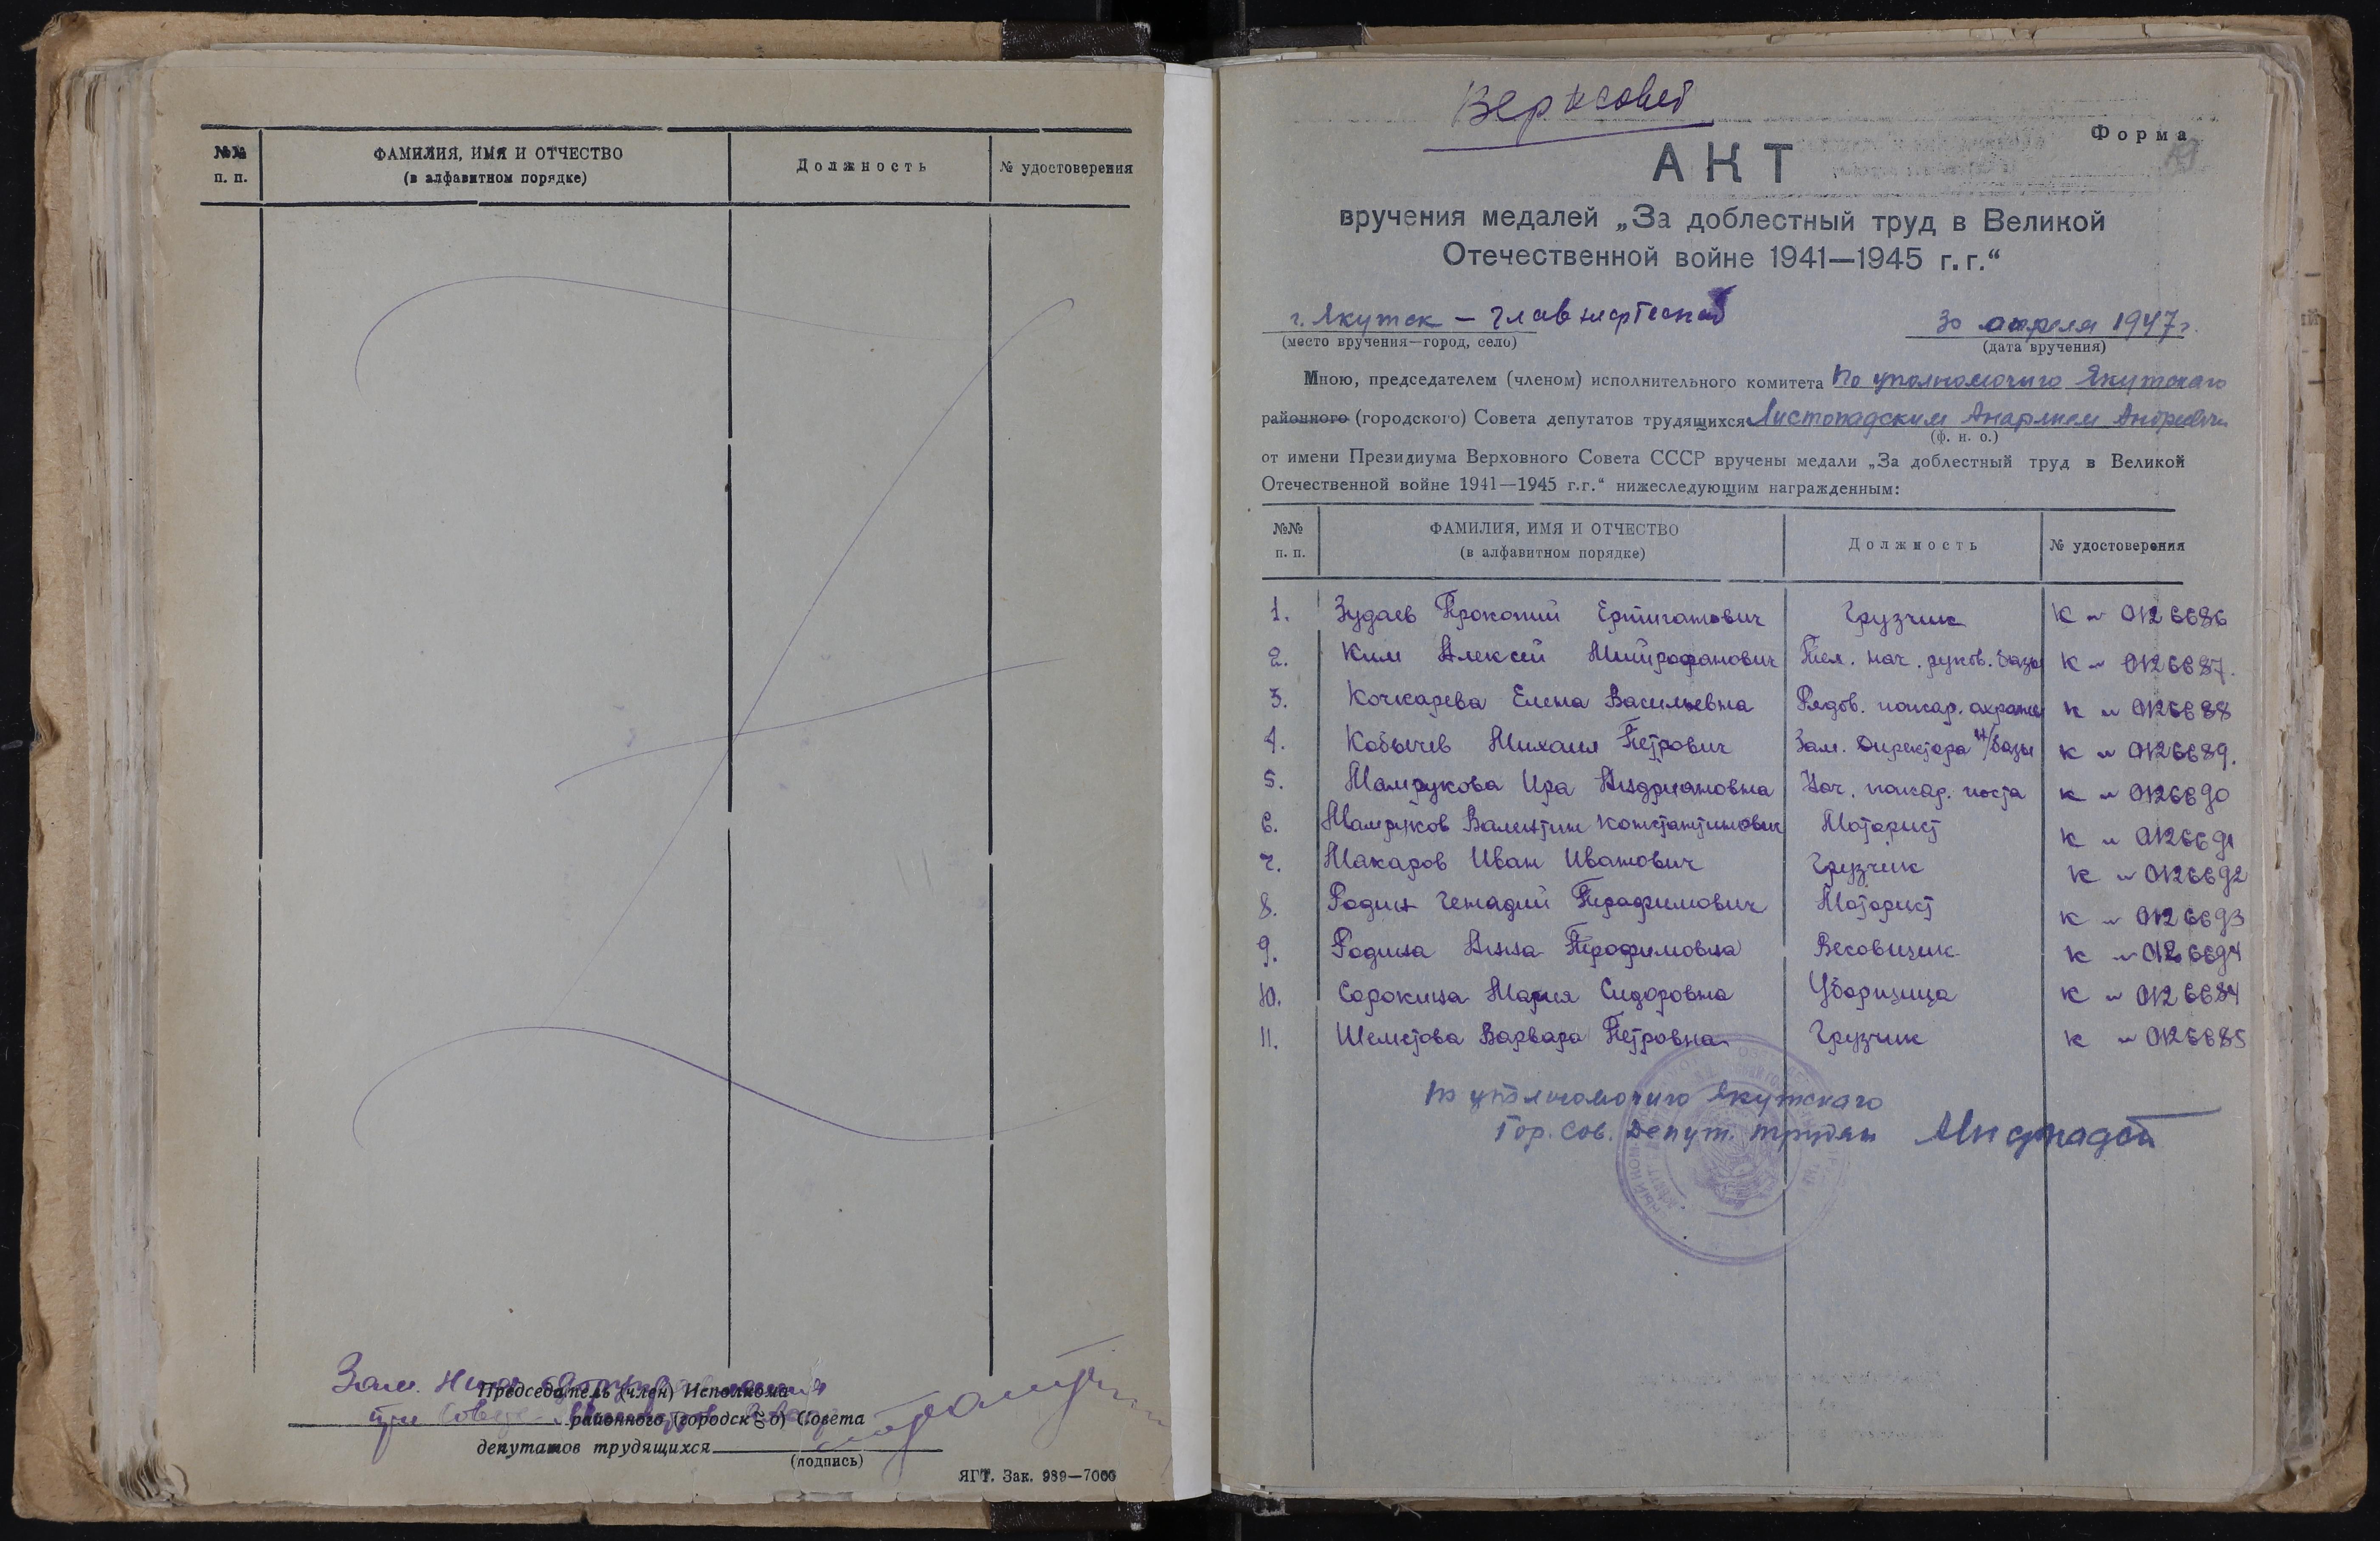 №№ п. п.
ФАМИЛИЯ, ИМЯ И ОТЧЕСТВО
(в алфавитном порядке)
Должность
№ удостоверения
Зам.
Председатель (член) Исполкома
районного (городского) Совета
депутатов трудящихся
(подпись)
ЯГТ. Зак. 989—7000
Верх совет
Форма
АКТ
вручения медалей „За доблестный труд в Великой
Отечественной войне 1941—1945 г.г.“
г. Якутск — Главнефтеснаб
30 апреля 1947 г.
(место вручения—город, село)
(дата вручения)
Мною, председателем (членом) исполнительного комитета По уполномочию Якутского
районного (городского) Совета депутатов трудящихся Листопадским Андреевич
(ф. и. о.)
от имени Президиума Верховного Совета СССР вручены медали „За доблестный труд в Великой
Отечественной войне 1941—1945 г.г.“ нижеследующим награжденным:
№№ п. п.
ФАМИЛИЯ, ИМЯ И ОТЧЕСТВО
(в алфавитном порядке)
Должность
№ удостоверения
1. Зудаев Прокопий Грузчик К № 0126686
2. Ким Алексей Митрофанович нач. базы К № 0126687.
3. Кочкарева Елена Васильевна Рядов. пожар. охраны К № 0126688
4. Кобычев Михаил Петрович Зам. Директора н/базы К № 0126689.
5. Мамрукова Ира Андриановна Нач. пожар. поста К № 0126690
6. Мамруков Валентин Константинович Моторист К № 0126691
7. Макаров Иван Иванович Грузчик К № 0126692
8. Родин Генадий Трофимович Моторист К № 0126693
9. Родина Анна Трофимовна Весовщик К № 0126694
10. Сорокина Мария Сидоровна Уборщица К № 0126684
11. Шеметова Варвара Петровна Грузчик К № 0126685
По уполномочию Якутского
Гор. Сов. Депут. трудящ